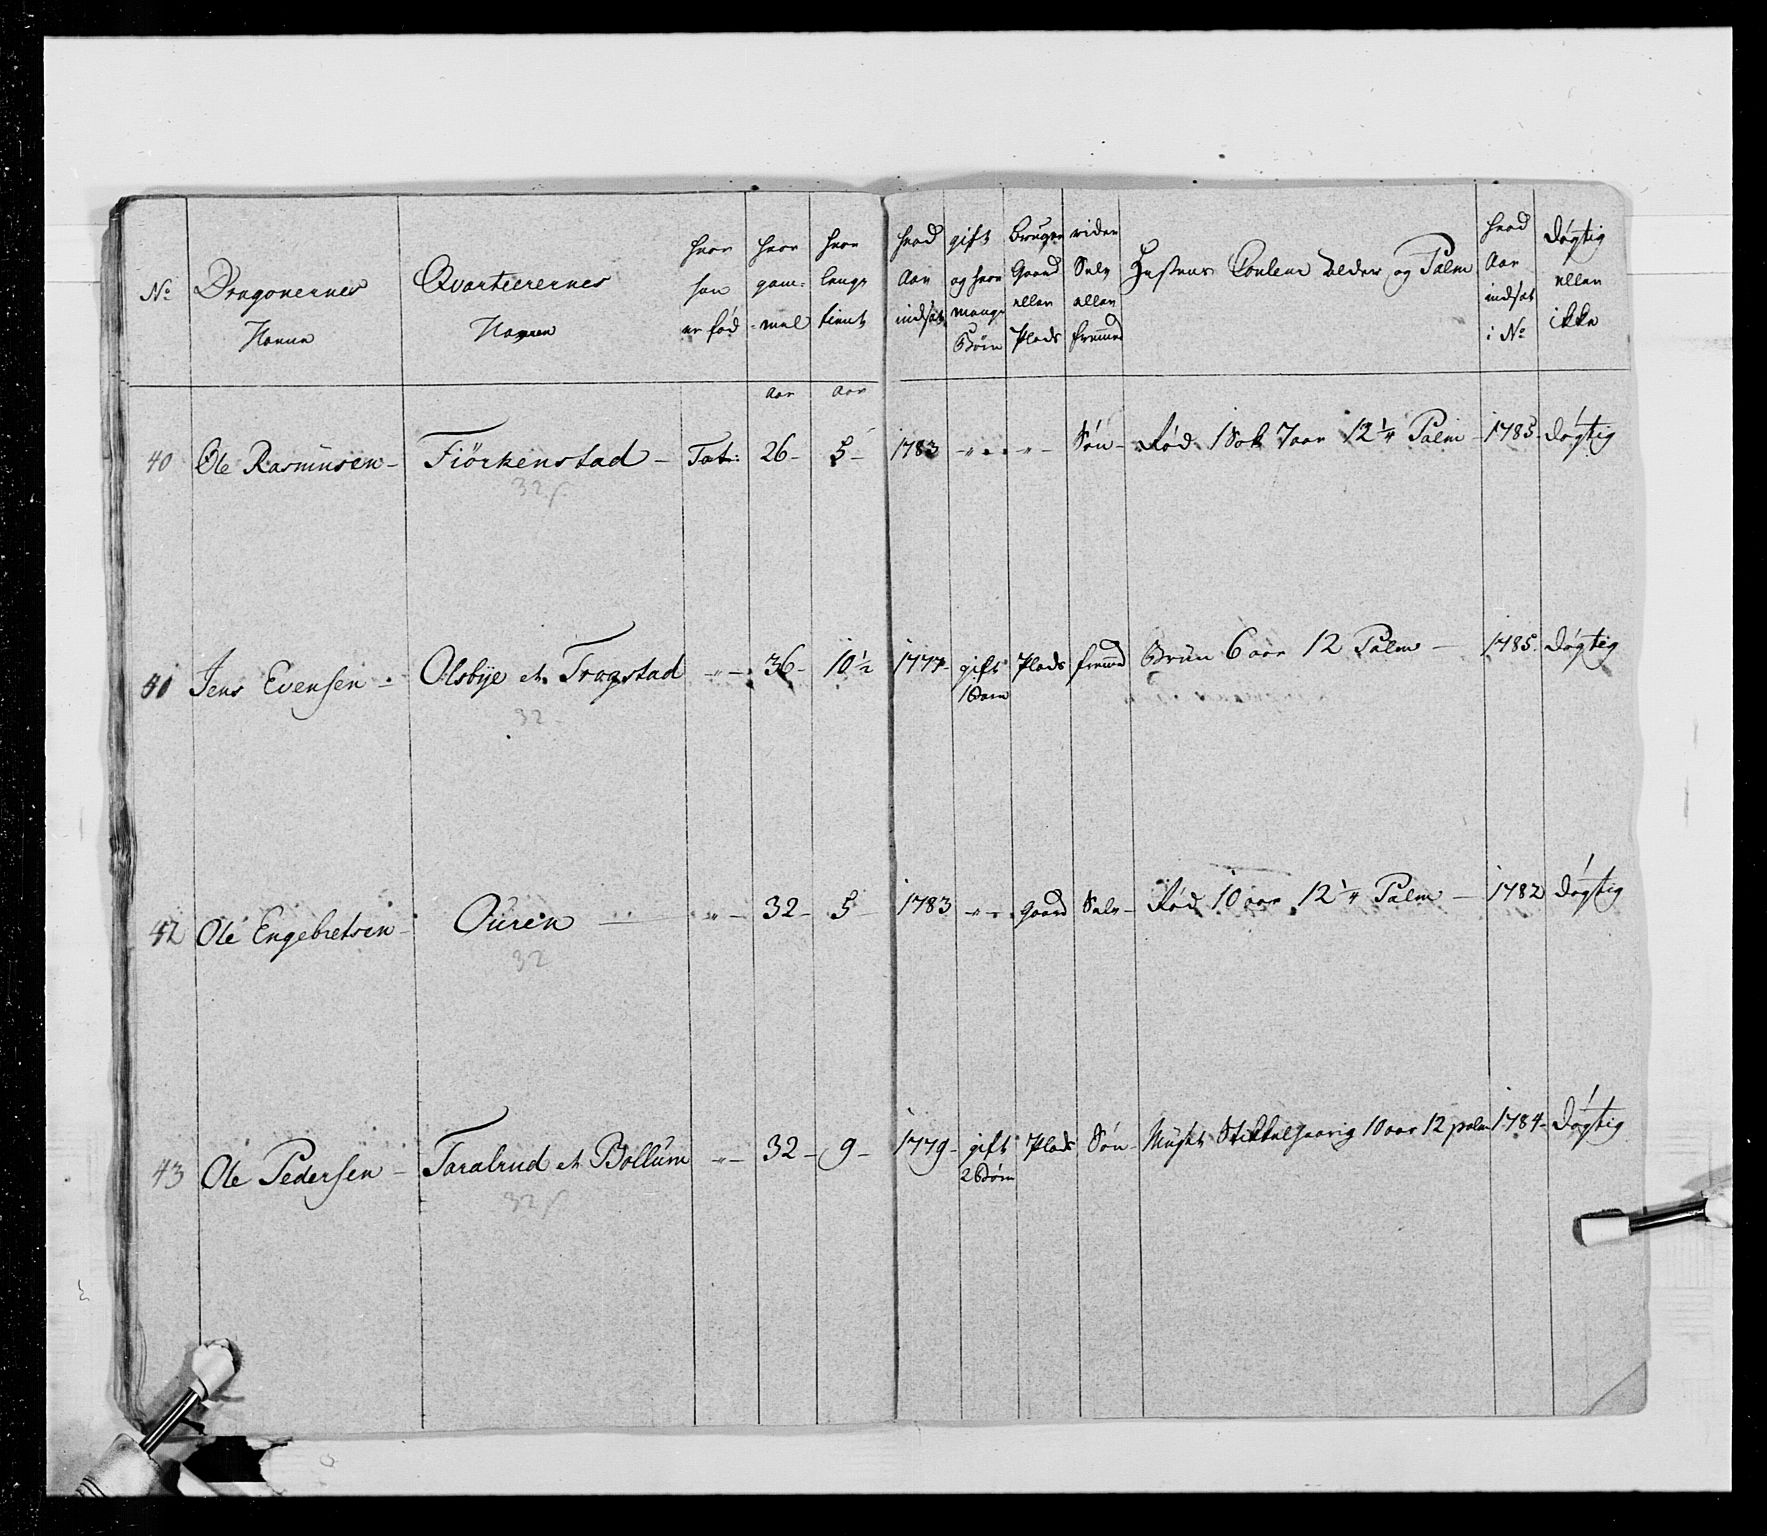 No
Dragonernes
Navne
Qvarteerernes
Navne
hvor
han
er fød
hvor
gam-
mel
hvor
lenge
tient
hvad
Aar
indsat
gift
og hvor
mange
Børn
bruger
Gaard
eller
Plads
rider
Selv
eller
fremmed
Hestens Couleur Alder og Palm
hvad
Aar
indsat
i No
døgtig
eller
ikke
aar aar
40 Ole Rasmusen - Fiörkenstad - Tot: 26 - 5 - 1783 - " - - " - Søn - Rød 1 Sok 7 aar 12 1/4 Palm - 1785 - døgtig
32 s
41 Jens Evensen - Olsbÿe et Trogstad - " - 36 - 10 1/2 1777 - gift Plads fremmed Brun 6 aar 12 Palm - 1785 - døgtig
1 Barn
32 -
42 Ole Engebretsen - Ouren - - " - 32 - 5 - 1783 - " - Gaard Selv - Rød 10 aar 12 1/4 Palm - 1782 døgtig
32
43 Ole Pedersen - Taralrud et Bollum - " - 32 - 9 - 1779 - gift Plads Søn - Muskt Stikkelhaarig 10 aar 12 palm 1784 - døgtig
2 Børn
32 s